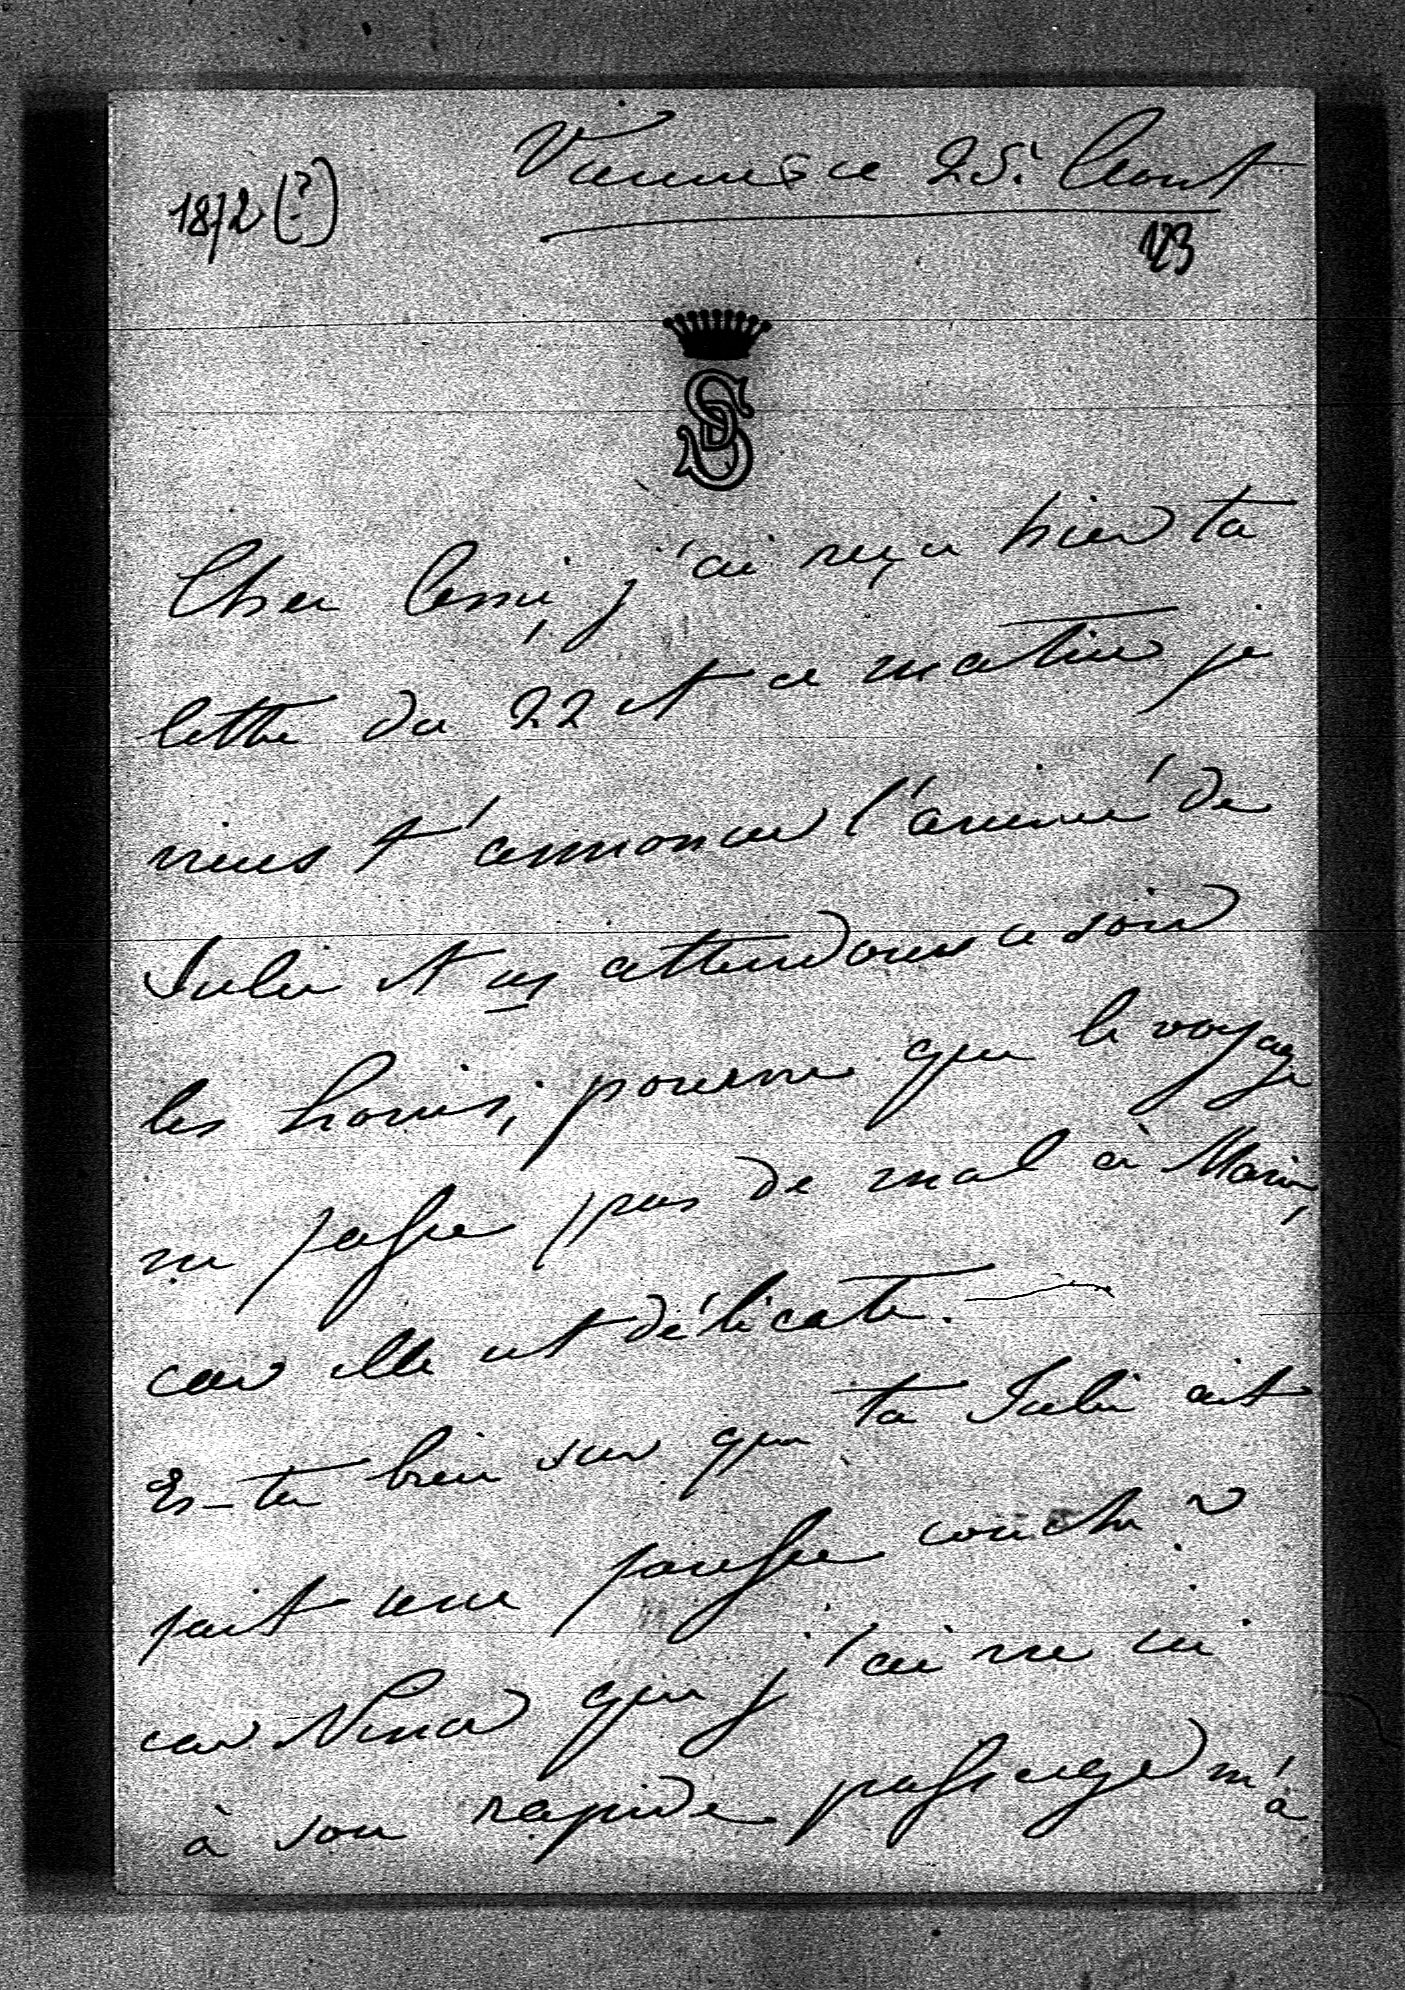 Vienne ce 25. Aout
1872 (?)
123
SD
Cher Ami, j'ai reçu hier ta
lettre du 22 et ce matin je
viens t'annoncer l'arrivé de
Julie et ns attendons ce soir
les Louis, pourvu que le voyage
ne fasse pas de mal à Marie,
car elle est délicate.
Es-tu bien sur que ta Julie ait
fait une fausse couche?
car Nina que j'ai vue ici
à son rapide passage m'a